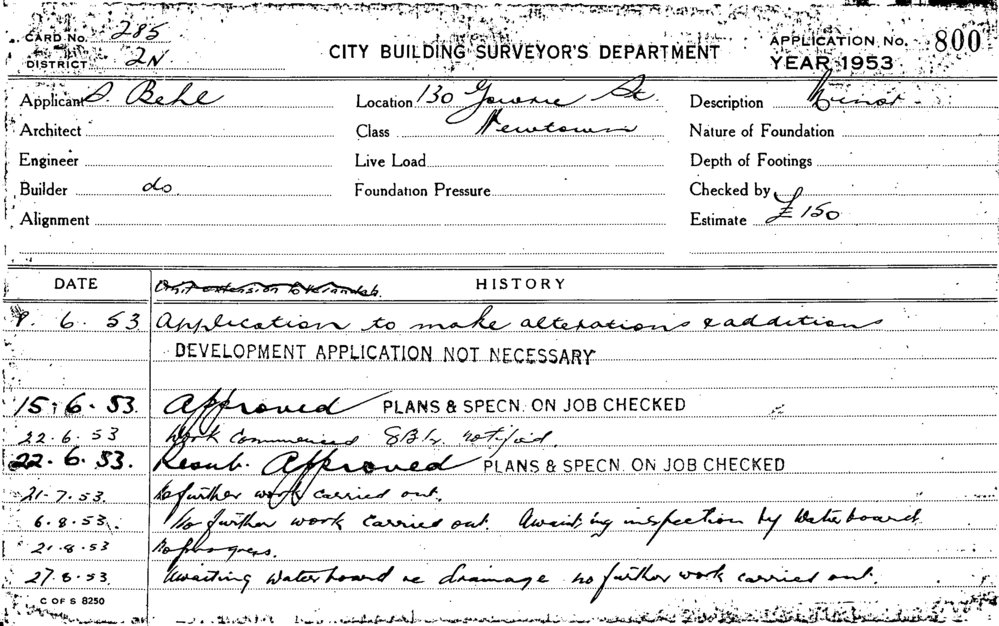 CARD No. 285
DISTRICT 2N
CITY BUILDING SURVEYOR'S DEPARTMENT
APPLICATION No. 800
YEAR 1953
Applicant S. Behl Location 130 Gowrie St. Description Minor
Architect Class Newtown Nature of Foundation
Engineer Live Load Depth of Footings
Builder do Foundation Pressure Checked by
Alignment Estimate £150
DATE HISTORY
9. 6. 53 Application to make alterations & additions
DEVELOPMENT APPLICATION NOT NECESSARY
15. 6. 53. Approved PLANS & SPECN. ON JOB CHECKED
22.6.53 Work commenced notified.
22. 6. 53. Resub. Approved PLANS & SPECN. ON JOB CHECKED
21-7.53. No further work carried out.
6.8.53. No further work carried out. Awaiting inspection by Waterboard.
21.8.53 No progress.
27.8.53. Awaiting Waterboard re drainage no further work carried out.
C OF S 8250